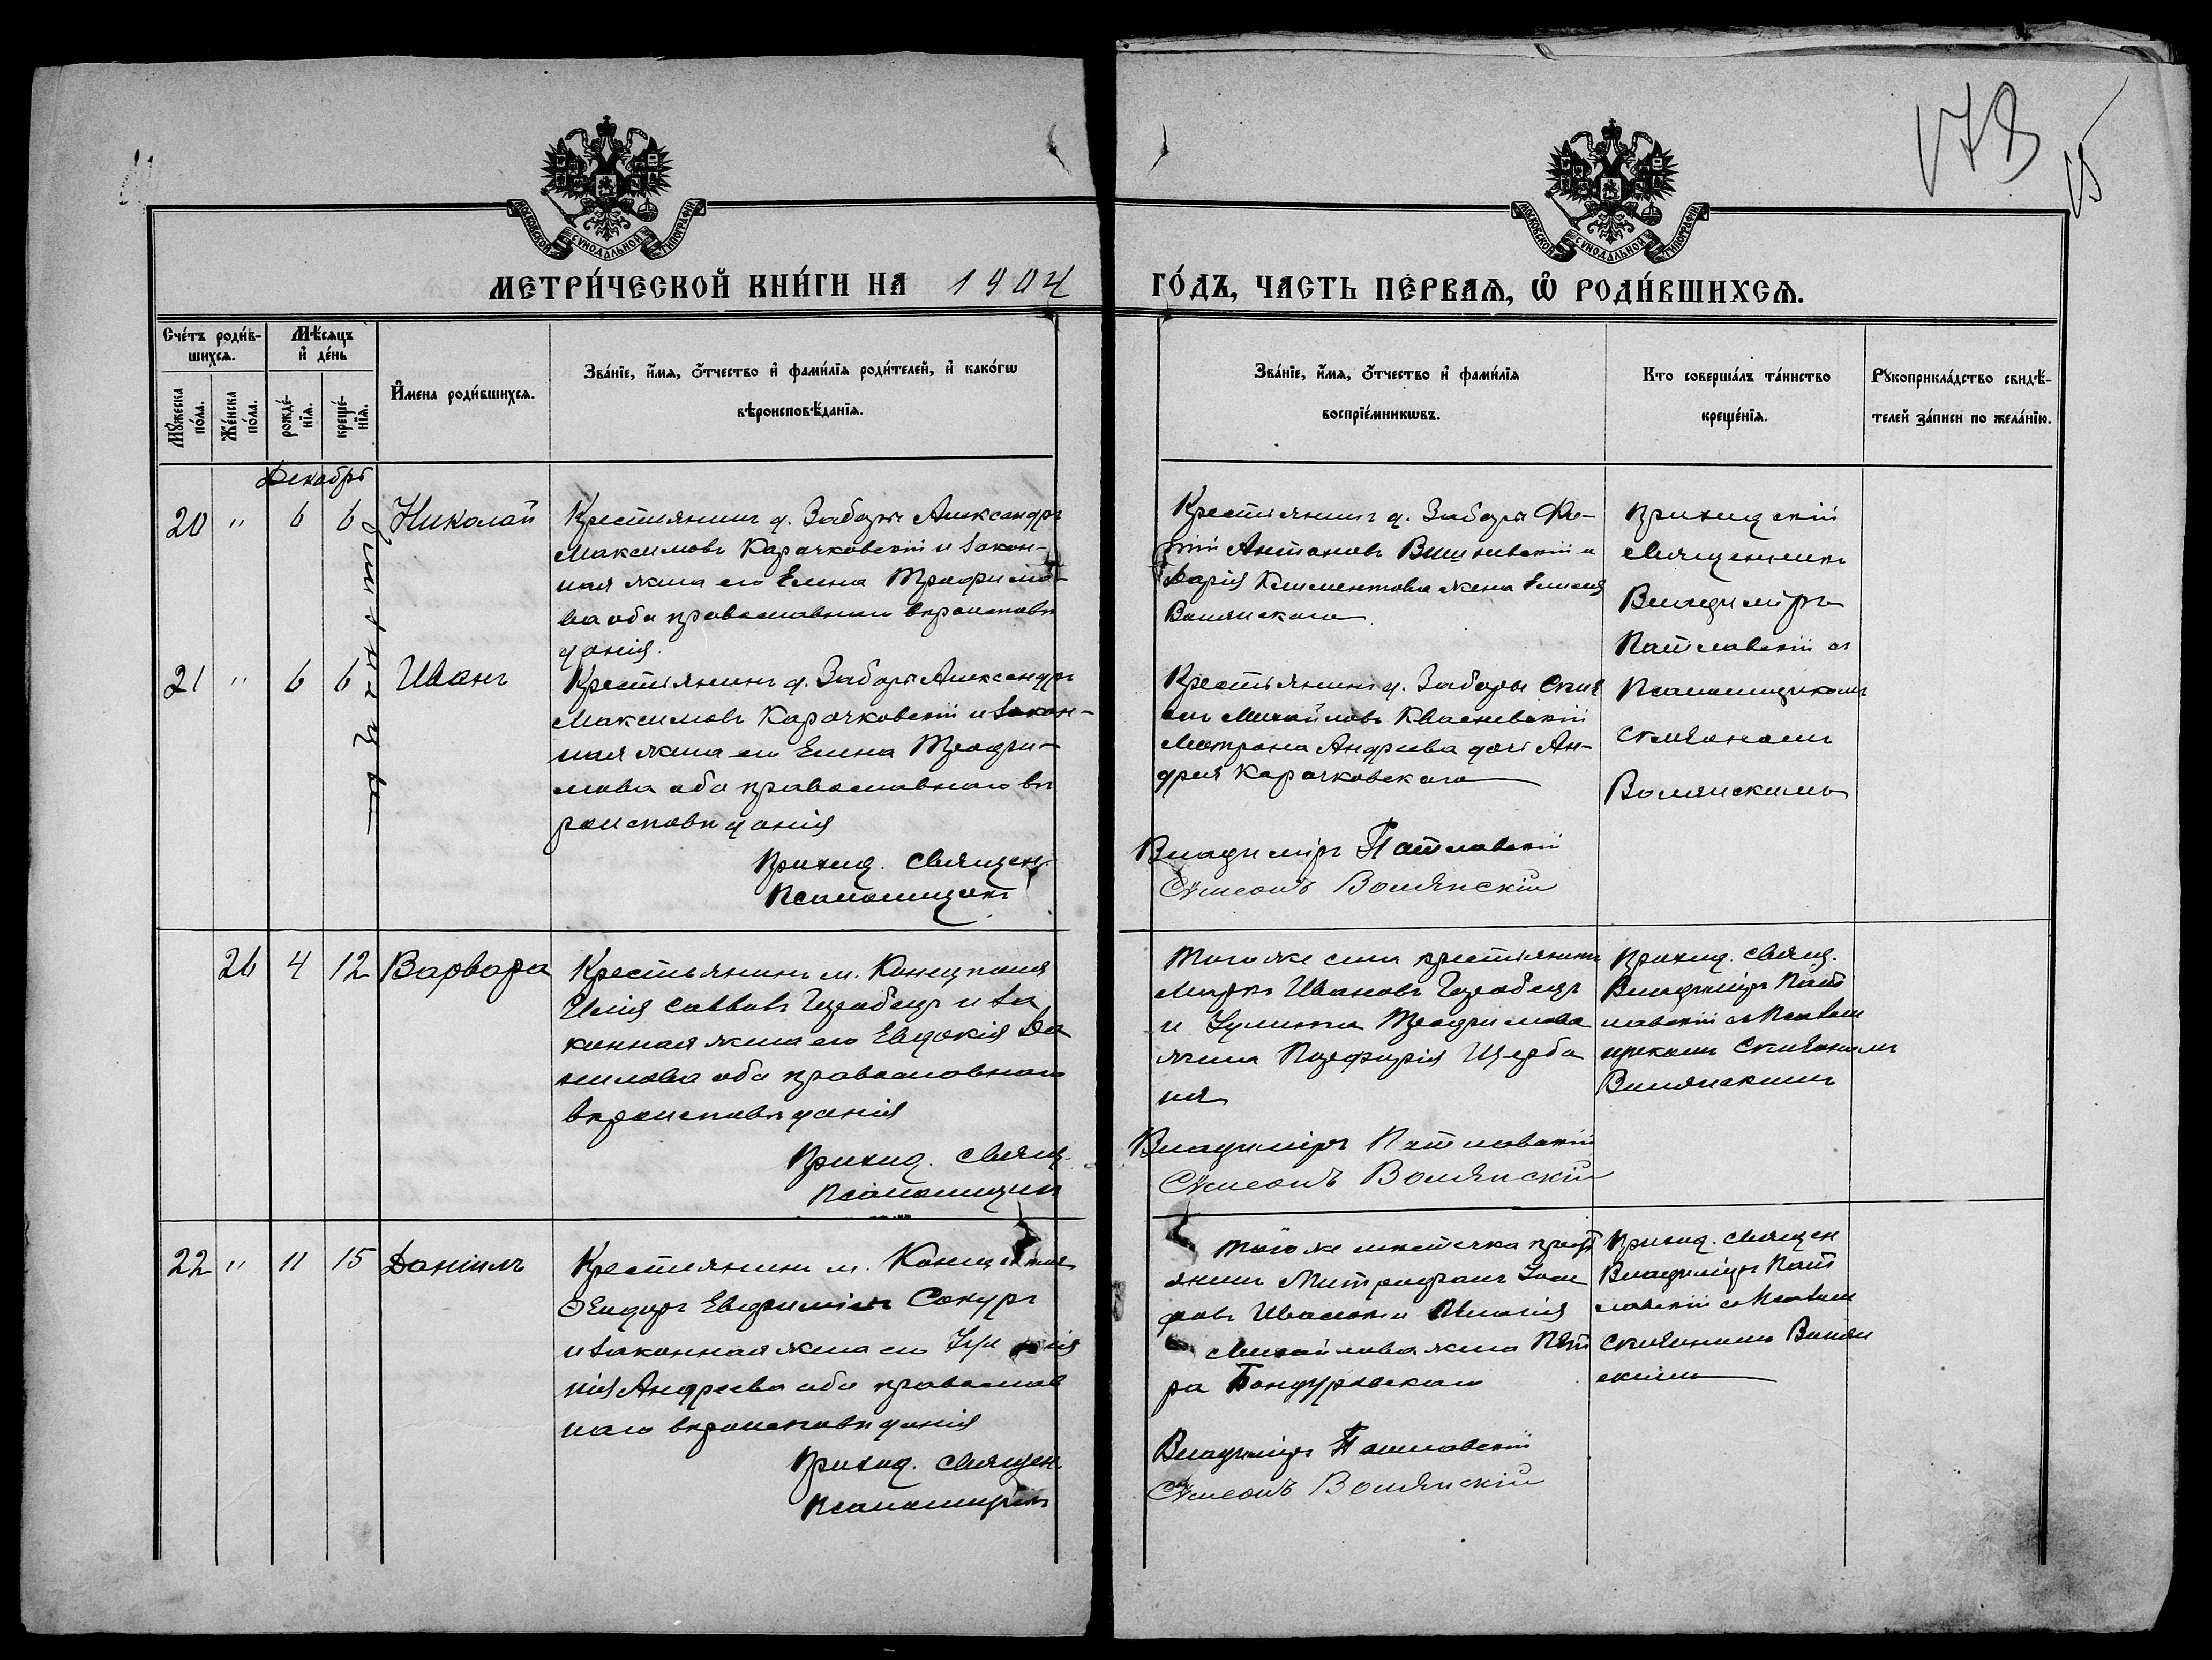 178
15
МОСКОВСКОЙ СѴНОДАЛЬНОЙ ТИПОГРАФІИ
МОСКОВСКОЙ СѴНОДАЛЬНОЙ ТИПОГРАФІИ
МЕТРИ́ЧЕСКОЙ КНИ́ГИ НА 1904 ГО́ДЪ, ЧАСТЬ ПЕ́РВАѦ, Ѿ РОДИ́ВШИХСѦ.
Сче́тъ роди́в-
шихсѧ.
Мꙋ́жеска по́ла.
Же́нска по́ла.
Мѣ́сѧцъ
и҆ де́нь
рожде́-
нїѧ.
креще́-
нїѧ.
И҆мена роди́вшихсѧ.
Зва́нїе, и҆́мѧ, ѻ҆́тчество и҆ фами́лїѧ роди́телей, и҆ како́гѡ
вѣроисповѣ́данїѧ.
Зва́нїе, и҆́мѧ, ѻ҆́тчество и҆ фами́лїѧ
воспрїе́мникѡвъ.
Кто соверша́лъ та́инство
креще́нїѧ.
Рꙋкоприкла́дство свидѣ́-
телей за́писи по жела́нїю.
Декабрь
20 " 6 6 Николай
Крестьянинъ д. Заборы Александръ
Максимовъ Карачковскій и закон-
ная жена его Елена Трофимо-
ва оба православнаго вѣроисповѣ
данія.
Крестьянинъ д. Заборы
Антоновъ Вишневскій и
Дарія Климентова жена Елисея
Волянскаго
Приходскій
Священникъ
Владиміръ
Патлавскій съ
Псаломщикомъ
Симеономъ
Волянскимъ
близнецы
21 " 6 6 Иванъ
Крестьянинъ д. Заборы Александръ
Максимовъ Карачковскій и закон-
ная жена его Елена Трофи-
мова оба православнаго вѣ
роисповѣданія
Приход. Священ.
Псаломщикъ
Крестьянинъ д. Заборы
Михайловъ Квасневскій
Матрона Андреева дочь Ан-
дрея Карачковскаго
Владиміръ Патлавскій
Симеонъ Волянскій
26 4 12 Варвара
Крестьянинъ м. Конецполя
Илія Саввовъ и за
конная жена его Евдокія Да
нилова оба православнаго
вѣроисповѣданія
Приход. Свящ.
Псаломщикъ
Того же села крестьянинъ
Ивановъ
и Іулита Трофимова
жена Порфирія Щерба
ня
Владиміръ Патлавскій
Симеонъ Волянскій
Приход. Свящ.
Владиміръ Пат
лавскій съ Псалом
щикомъ Симеономъ
Волянскимъ
22 " 11 15 Даніилъ
Крестьянинъ м. Конецполя
Ѳеодоръ Евфиміевъ Сокуръ
и законная жена его
нія Андреева оба православ
наго вѣроисповѣданія
Приход. Священ.
Псаломщикъ
Того же мѣстечка крест
янинъ Митрофанъ Іоси
фовъ
Михайлова жена Пет
ра Бондуровскаго
Владиміръ Патлавскій
Симеонъ Волянскій
Приход. Священ
Владиміръ Пат
лавскій съ Псалом
Симеономъ Волян
скимъ